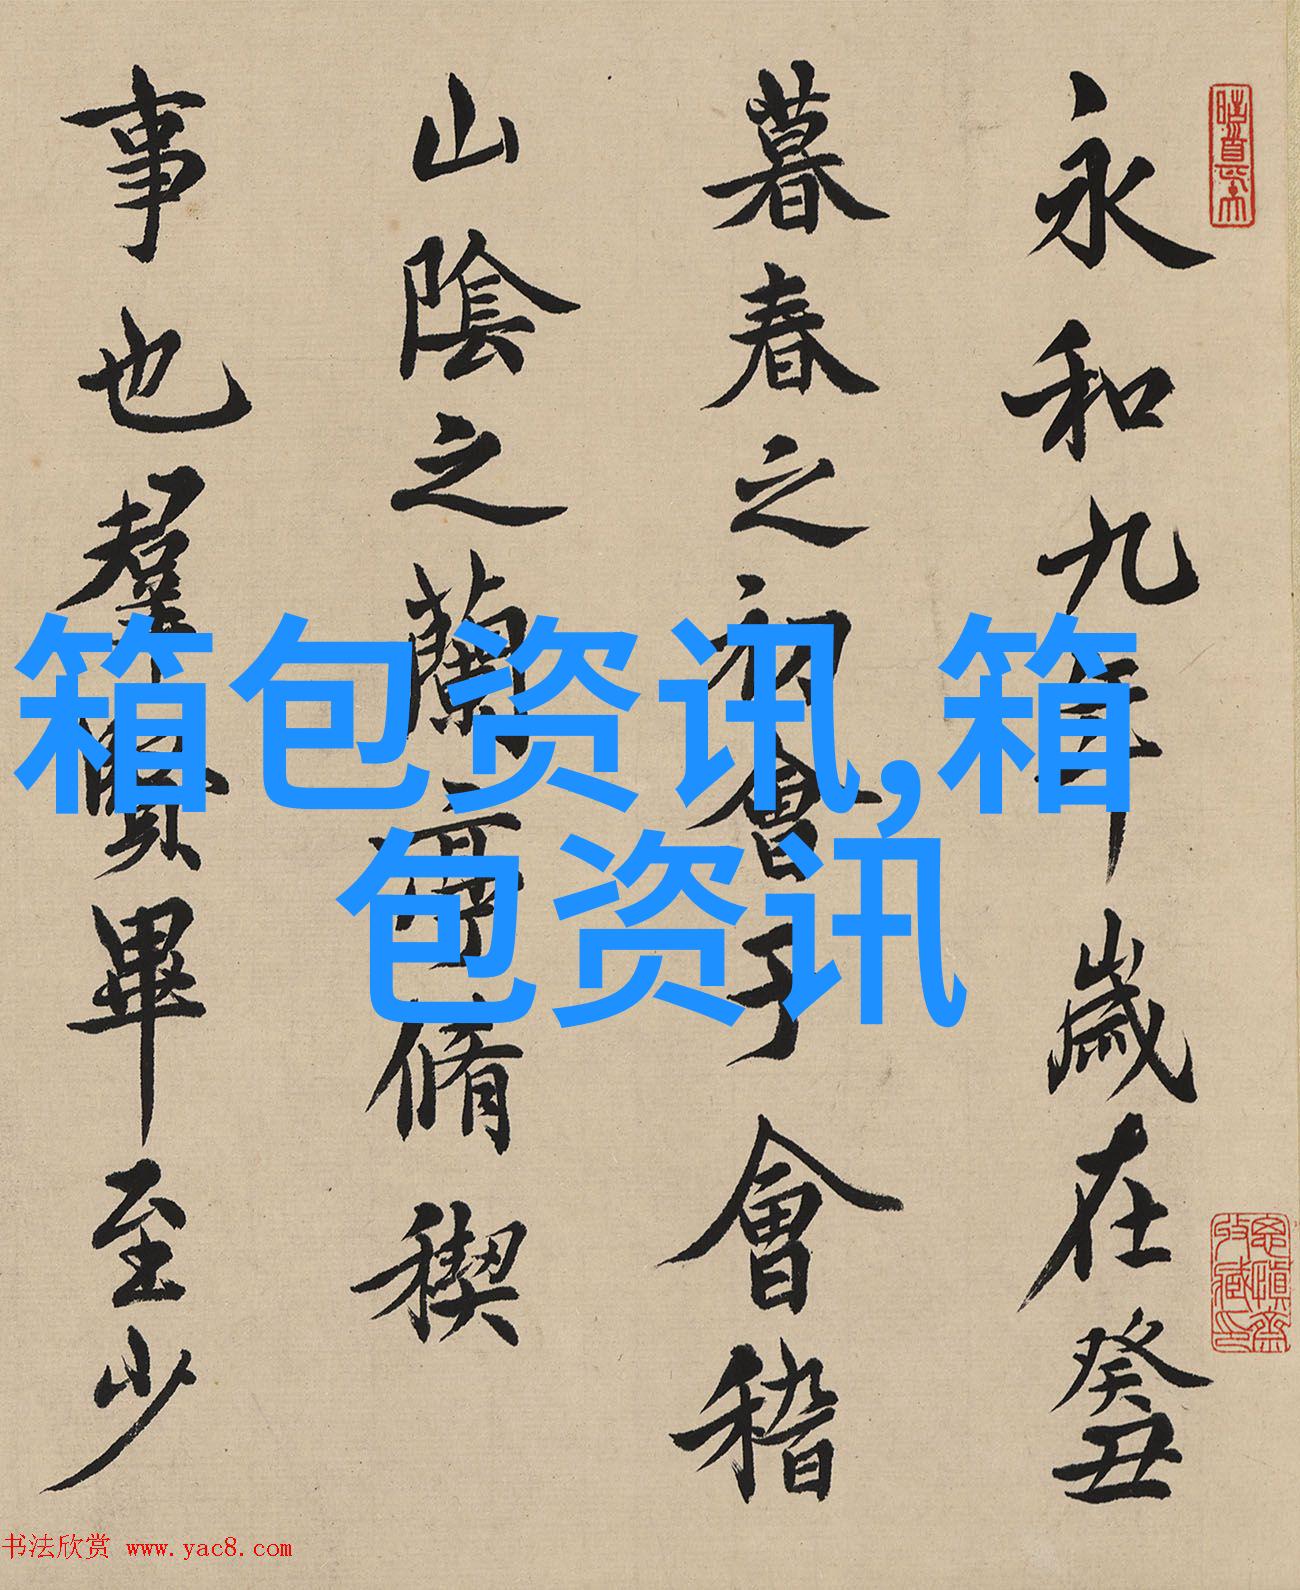 永和九年歲在癸丑
暮春之初會于會稽
山陰之蘭亭脩稧
事也羣賢畢至少
箱包资讯,箱
包资讯
书法欣赏 www.yac8.com